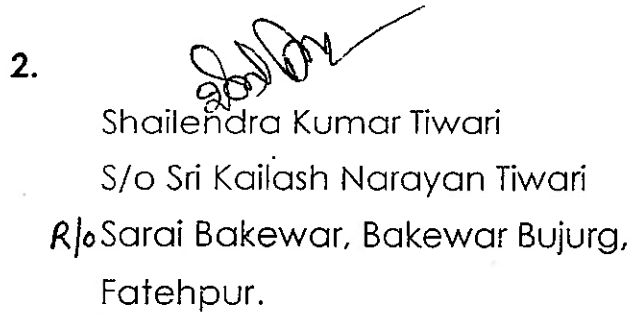 2.
Shailendra Kumar Tiwari
S/o Sri Kailash Narayan Tiwari
R/o Sarai Bakewar, Bakewar Bujurg,
Fatehpur.